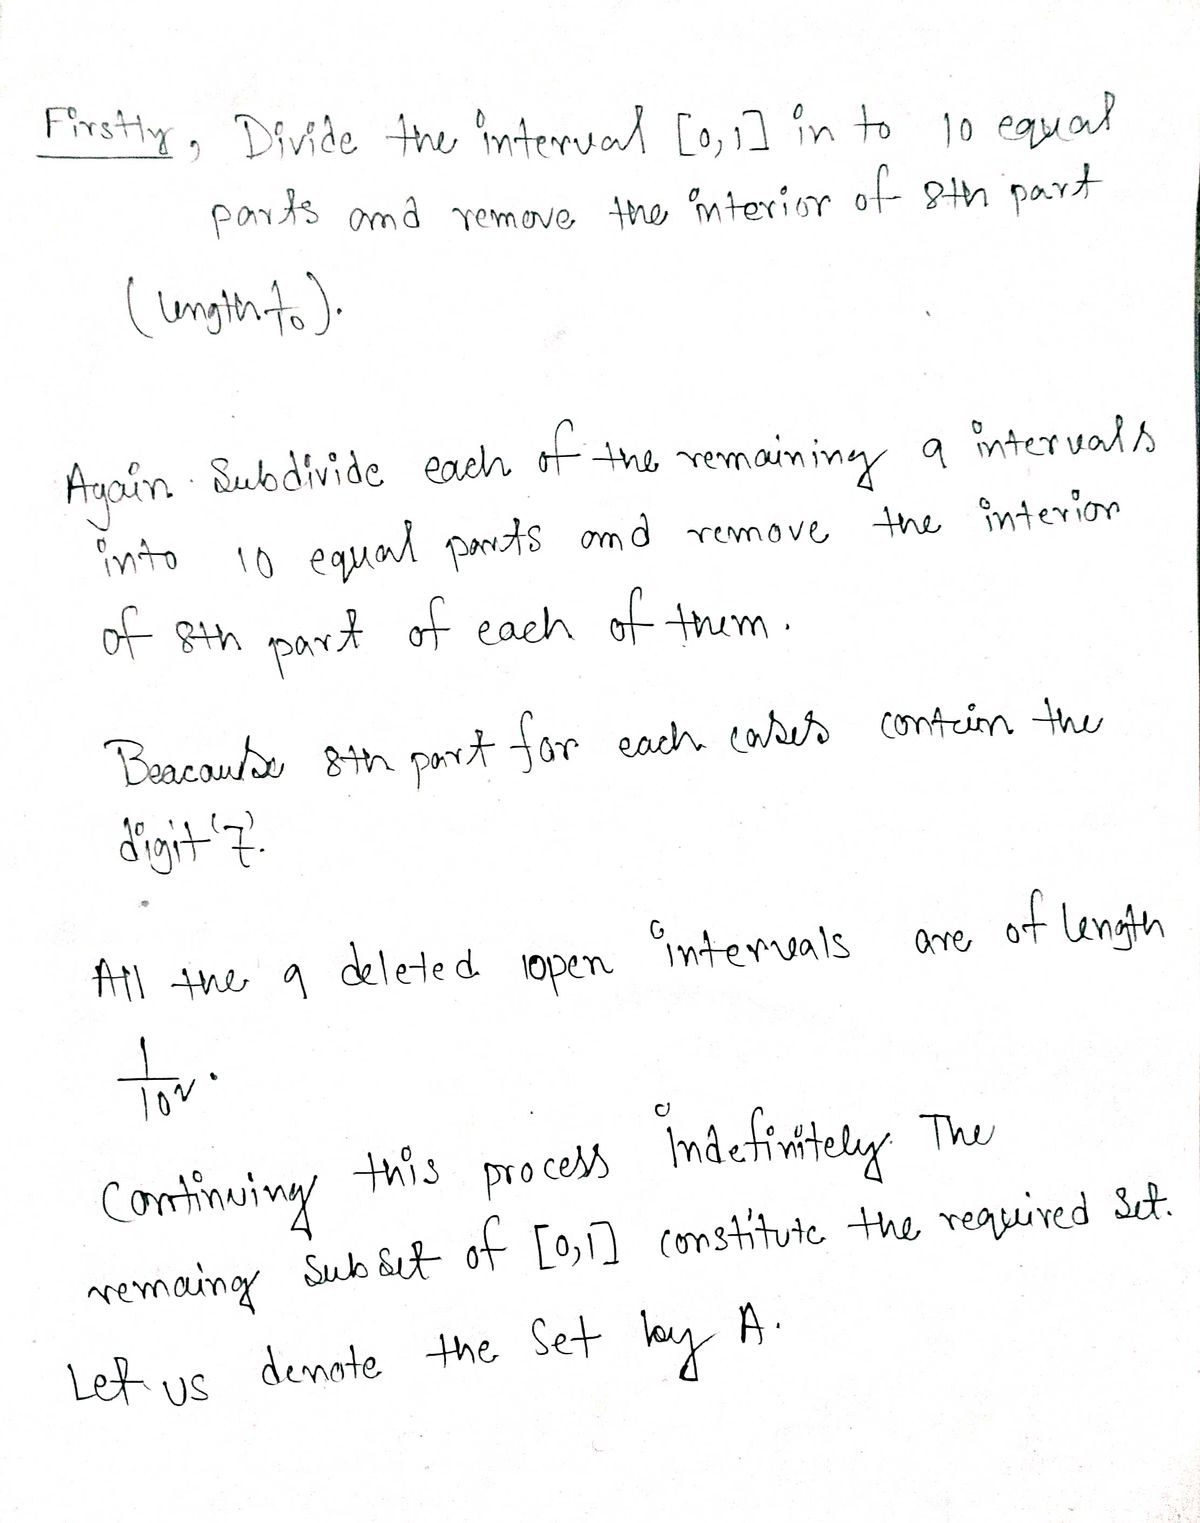 Firstly, Divide the interval [0,1] in to 10 equal
parts and remove the interior of 8th part
(length 1/10).
Again Subdivide each of the remaining 9 intervals
into 10 equal parts and remove the interior
of 8th part of each of them.
Beacause 8th part for each cases contain the
digit '7'.
All the 9 deleted open intervals are of length
1/10².
Continuing this process indefinitely. The
remaing subset of [0,1] constitute the required set.
Let us denote the set by A.